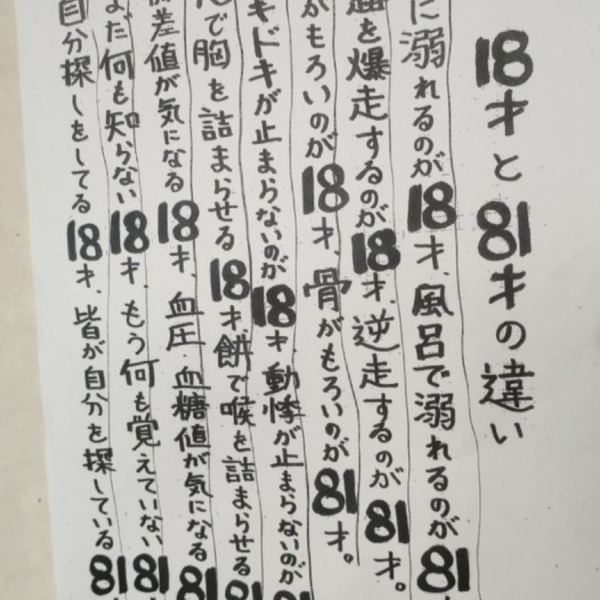 18才と81才の違い
に溺れるのが18才、風呂で溺れるのが81
を爆走するのが18才、逆走するのが81才。
がもろいのが18才、骨がもろいのが81才。
キドキが止まらないのが18才、動悸が止まらないのが81
で胸を詰まらせる18才、餅で喉を詰まらせる81
差値が気になる18才、血圧・血糖値が気になる81
だ何も知らない18才、もう何も覚えていない81
自分探しをしてる18才、皆が自分を探している81